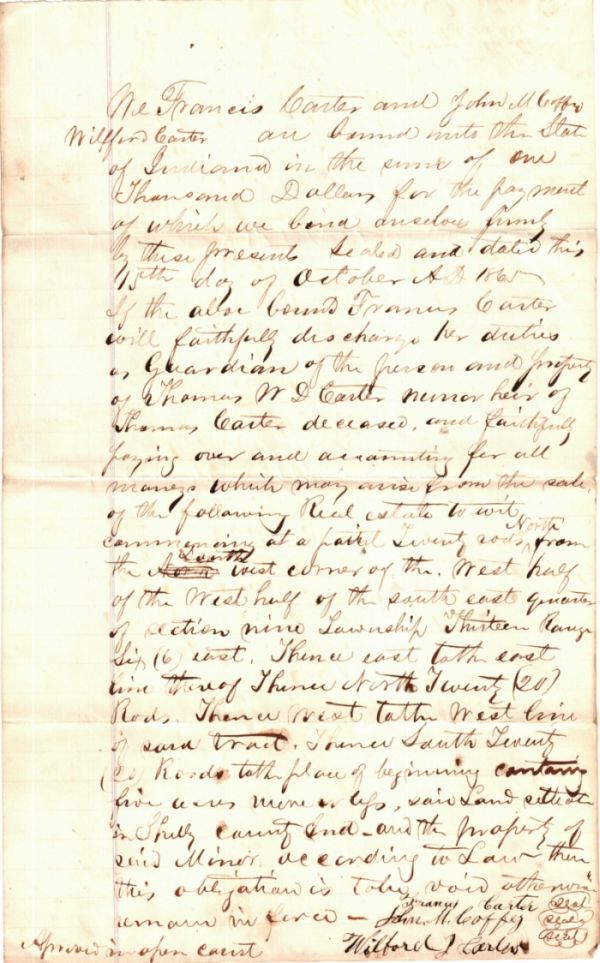 We Francis Carter and John M Coffee
Willford Carter are bound unto the State
of Indiana in the sum of one
Thousand Dollars for the payment
of which we bind ourselves firmly
by these presents Sealed and dated this
15th day of October A.D. 1865
If the above bound Francis Carter
will faithfully discharge her duties
as Guardian of the person and property
of Thomas W D Carter minor heir of
Thomas Carter deceased, and faithfully
paying over and accounting for all
moneys which may arise from the sale
of the following Real estate to wit,
commencing at a point Twenty rods North from
the South west corner of the West half
of the West half of the south east quarter
of section nine Township Thirteen Range
Six (6) east. Thence east to the east
line thereof Thence North Twenty (20)
Rods. Thence West to the West line
of said tract. Thence South Twenty
(20) Roods to the place of beginning containing
five acres more or less, said Land situate
in Shelby county Ind - and the property of
said Minor, according to Law, then
this obligation is to be void otherwise
remain in force - Francis Carter seal
John M. Coffey seal
Approved in open court Wilford J Carter seal